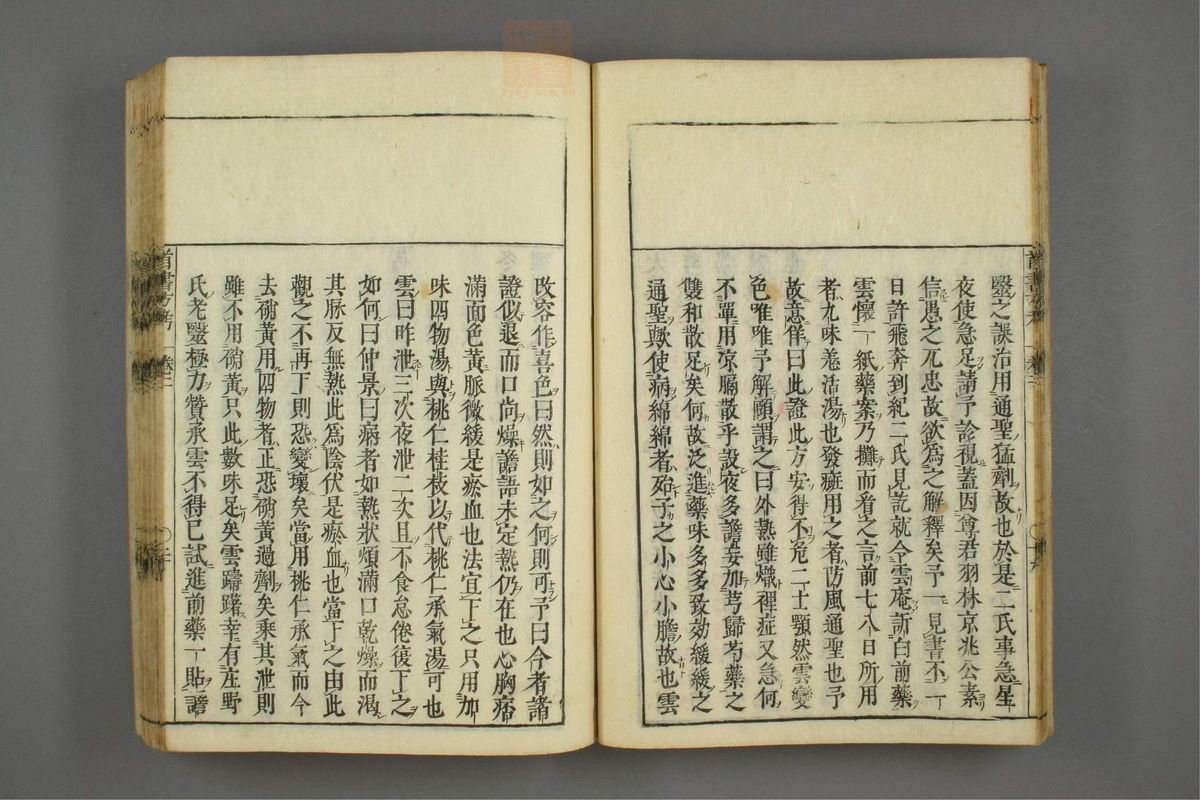 醫之誤治用通聖猛劑故也於是二氏事急星
夜使急足請予診視蓋因尊君羽林京兆公素
信愚之兀忠故欲為之解釋矣予一見書不一
日許飛奔到紀二氏見訖就令雲庵訴白前藥
雲懷一紙藥案乃攤而看之言前七八日所用
者九味羗活湯也發斑用之者防風通聖也予
故意佯曰此證此方安得不危二士顎然雲變
色唯唯予解頤謂之曰外熱雖熾裡症又急何
不單用凉膈散乎設夜多譫妄加芎歸芍藥之
雙和散足矣何故泛進藥味多多致効緩緩之
通聖歟使病綿綿者殆子之小心小膽故也雲
改容作喜色曰然則如之何則可予曰今者諸
證似退而口尚燥譫語未定熱仍在也心胸痞
滿面色黃脈微緩是瘀血也法宜下之只用加
味四物湯與桃仁桂枝以代桃仁承氣湯可也
雲曰昨泄三次夜泄二次且不食怠倦復下之
如何曰仲景曰病者如熱狀煩滿口乾燥而渴
其脉反無熱此為陰伏是瘀血也當下之由此
觀之不再下則恐變壞矣當用桃仁承氣而今
去硝黃用四物者正恐硝黃過劑矣乘其泄則
雖不用硝黃只此數味足矣雲躊躇幸有庄野
氏老醫極力贊承雲不得已試進前藥一貼譫
卷三